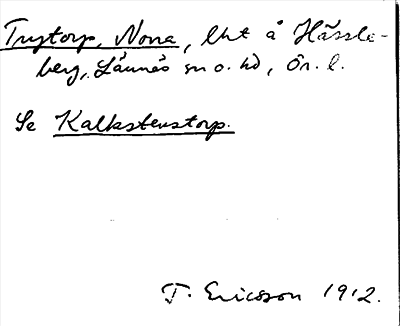 Trytorp, Norra, lht å Hässle-
berg, Lännäs sn o. hd, Ör. l.
Se Kalkstenstorp.
T. Ericsson 1912.